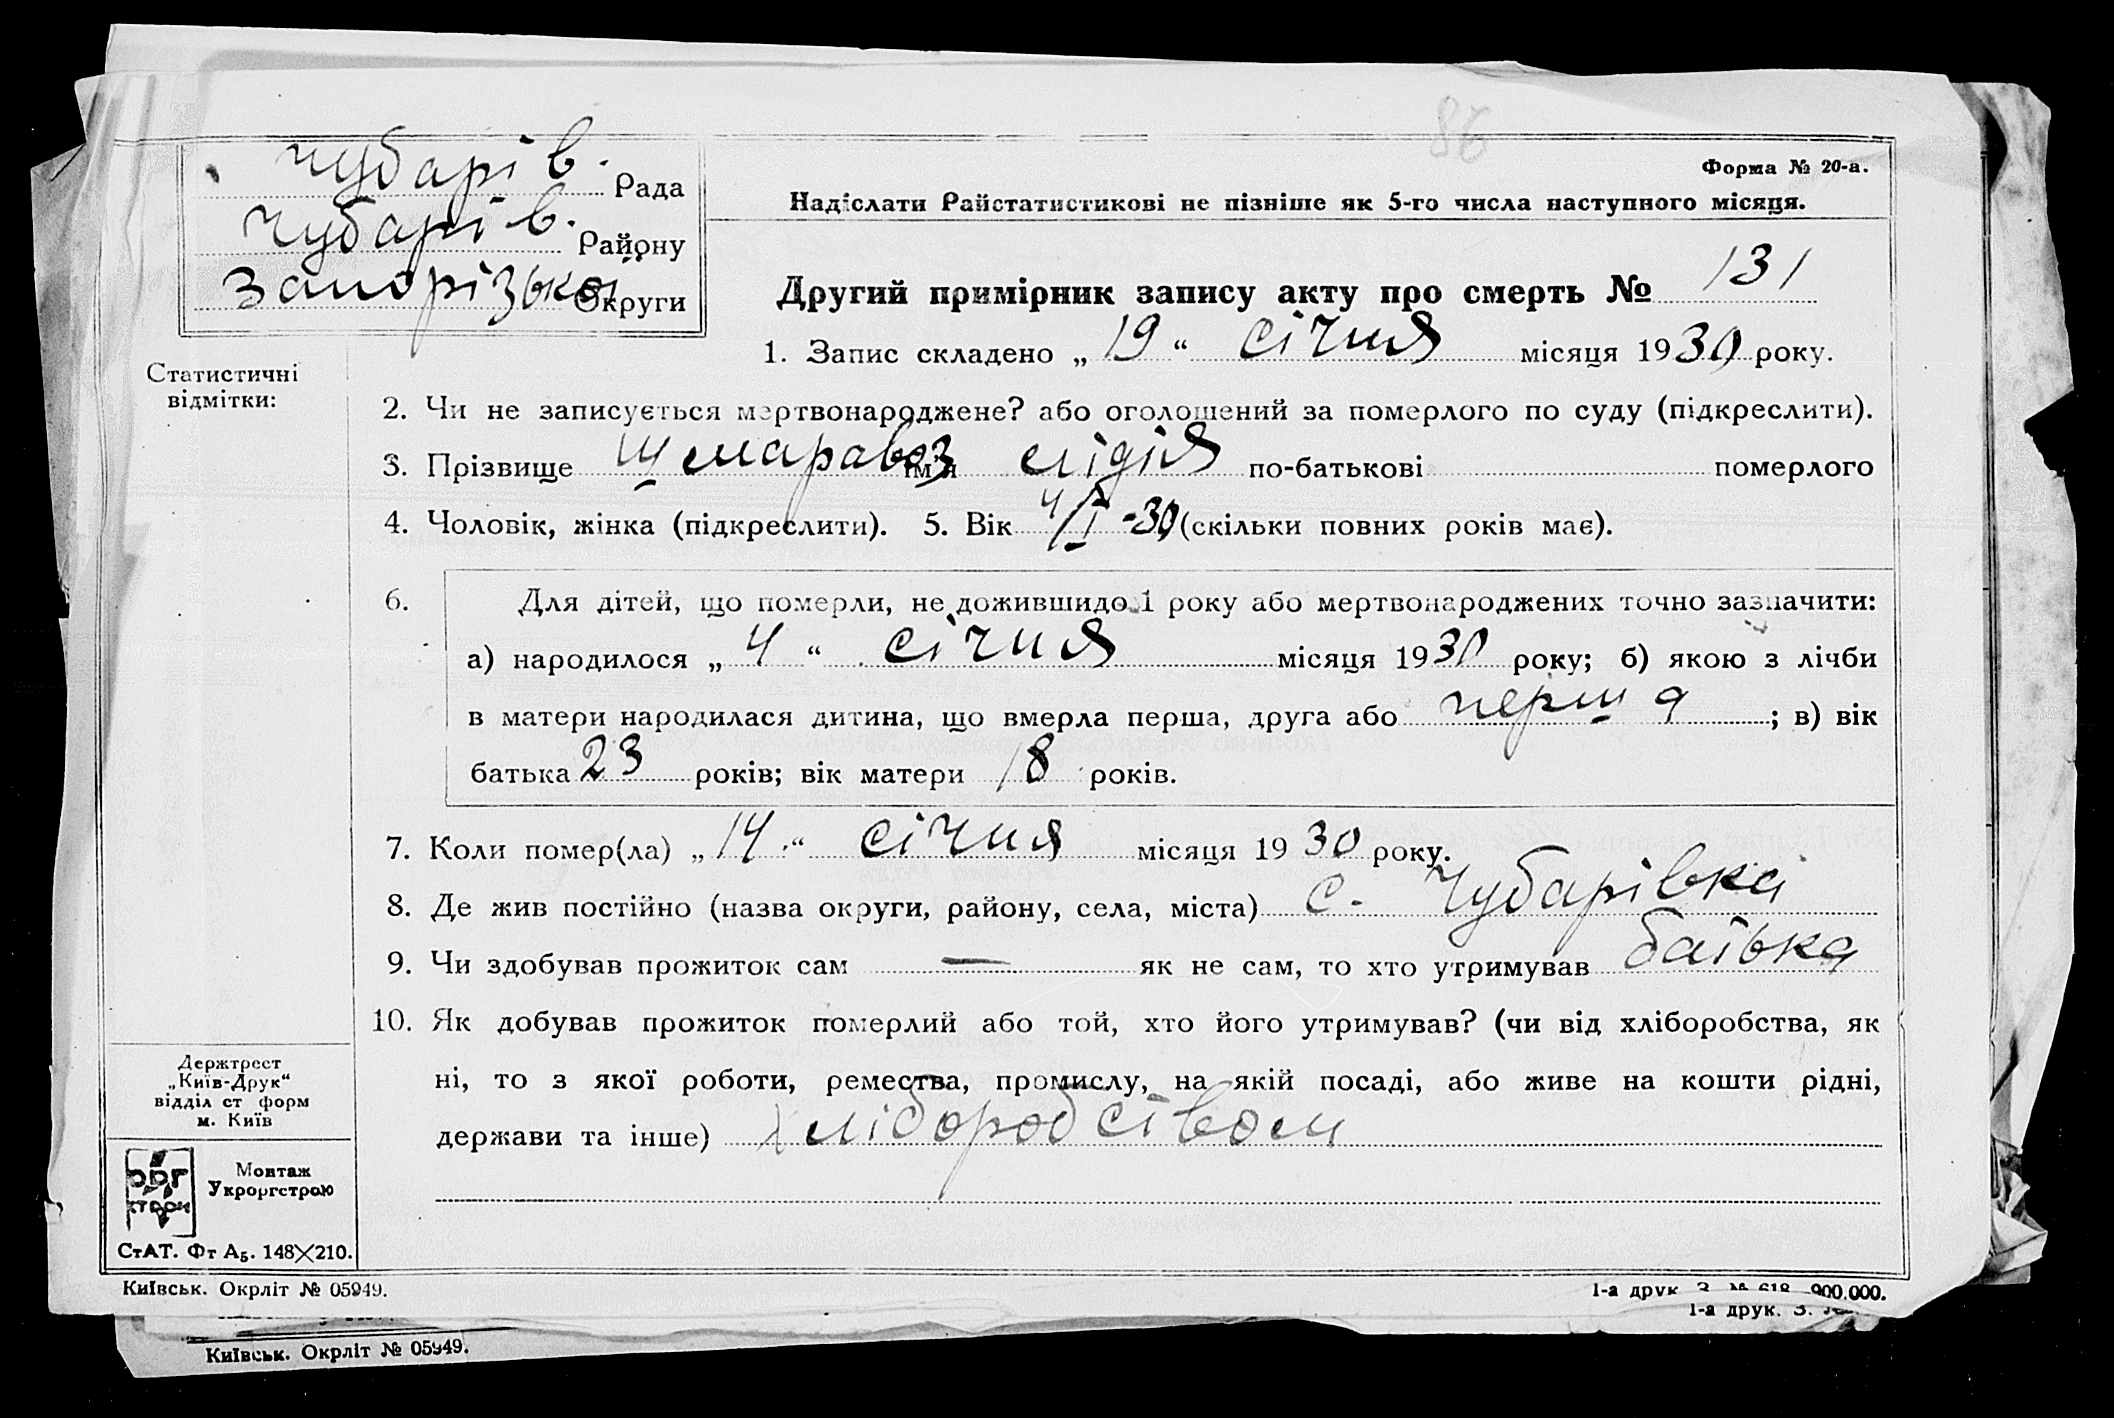 86
Чубарів. Рада
Чубарів. Району
Запорізької Округи
Форма № 20-а.
Надіслати Райстатистикові не пізніше як 5-го числа наступного місяця.
Другий примірник запису акту про смерть № 131
1. Запис складено „19“ січня місяця 1930 року.
Статистичні
відмітки:
2. Чи не записується мертвонароджене? або оголошений за померлого по суду (підкреслити).
3. Прізвище ім'я Лідія по-батькові померлого
4. Чоловік, жінка (підкреслити). 5. Вік 4/I-30 (скільки повних років має).
6. Для дітей, що померли, не дожившидо 1 року або мертвонароджених точно зазначити:
а) народилося „4“ січня місяця 1930 року; б) якою з лічби
в матери народилася дитина, що вмерла перша, друга або перша; в) вік
батька 23 років; вік матери 18 років.
7. Коли помер(ла) „14“ січня місяця 1930 року.
8. Де жив постійно (назва округи, району, села, міста) с. Чубарівка
9. Чи здобував прожиток сам — як не сам, то хто утримував батька
10. Як добував прожиток померлий або той, хто його утримував? (чи від хліборобства, як
ні, то з якої роботи, ремества, промислу, на якій посаді, або живе на кошти рідні,
держави та інше) хліборобством
Держтрест
„Київ-Друк“
відділ ст форм
м. Київ
Монтаж
Укроргстрою
СтАТ. Фт А5. 148×210.
Київськ. Окрліт № 05949.
1-а друк. З. № 618—900.000.
1-а друк. З.
Київськ. Окрліт № 05949.